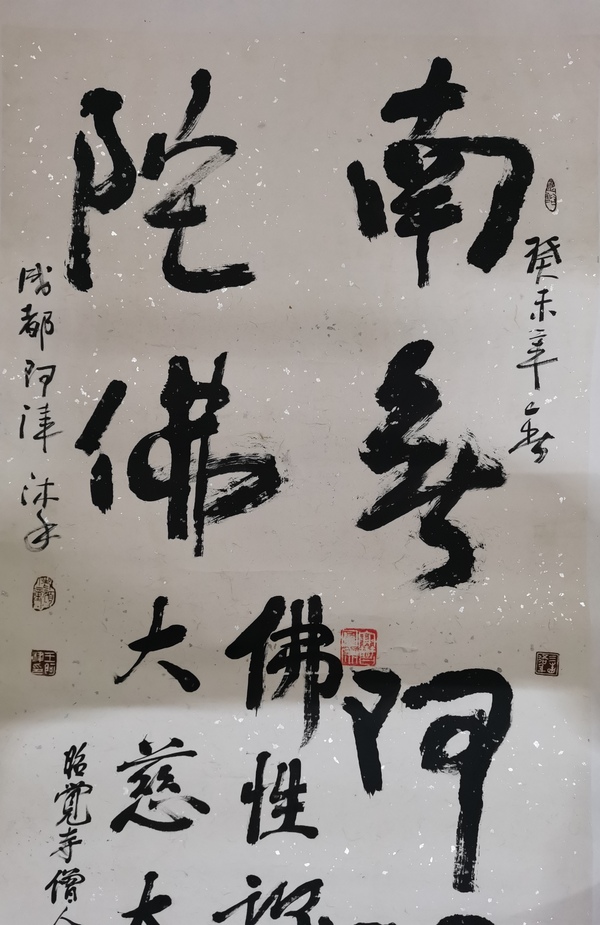 癸未年春
南無阿
陀佛
成都阿津沐手
佛性
大慈大
昭覺寺僧人